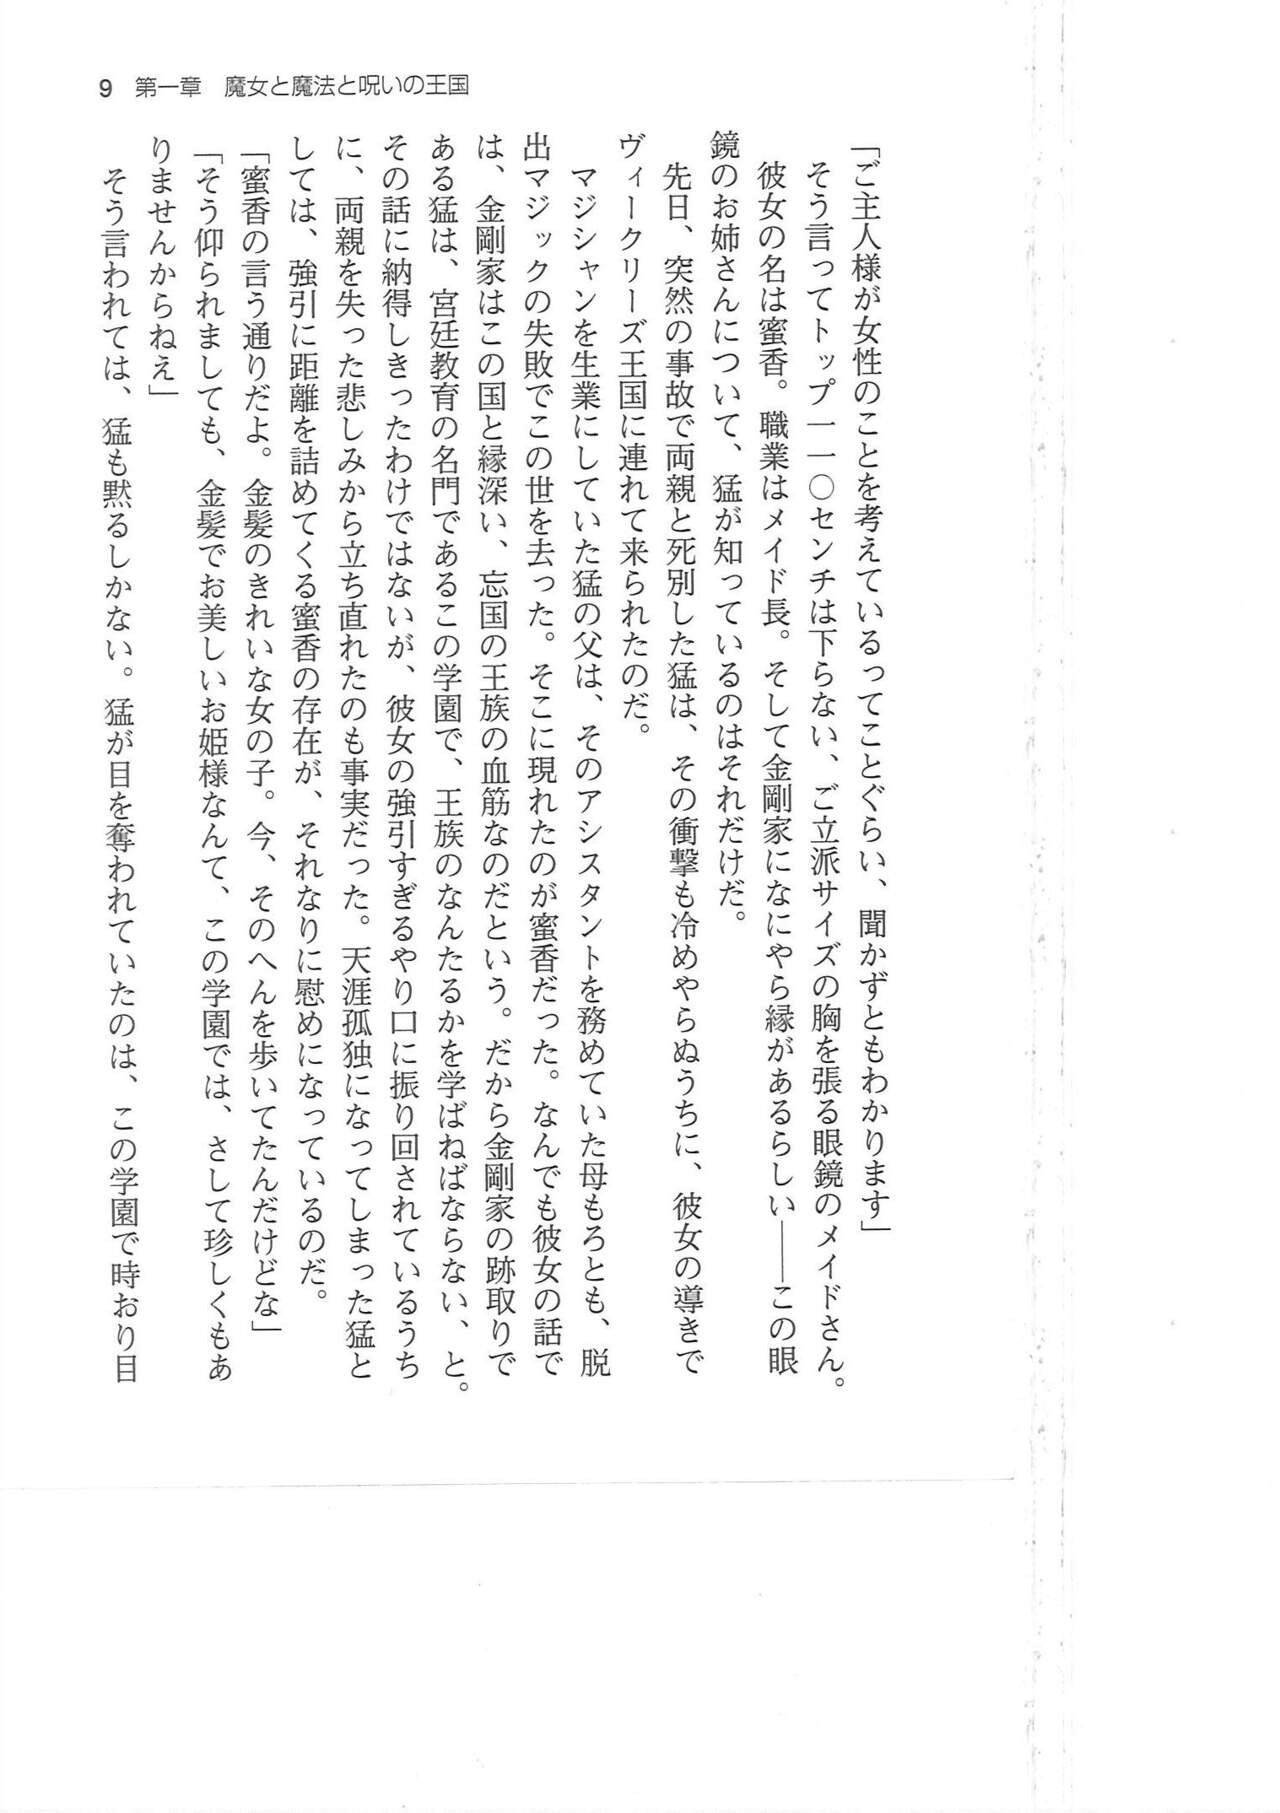 9 第一章　魔女と魔法と呪いの王国
「ご主人様が女性のことを考えているってことぐらい、聞かずともわかります」
そう言ってトップ一一〇センチは下らない、ご立派サイズの胸を張る眼鏡のメイドさん。
彼女の名は蜜香。職業はメイド長。そして金剛家になにやら縁があるらしい――この眼
鏡のお姉さんについて、猛が知っているのはそれだけだ。
先日、突然の事故で両親と死別した猛は、その衝撃も冷めやらぬうちに、彼女の導きで
ヴィークリーズ王国に連れて来られたのだ。
マジシャンを生業にしていた猛の父は、そのアシスタントを務めていた母もろとも、脱
出マジックの失敗でこの世を去った。そこに現れたのが蜜香だった。なんでも彼女の話で
は、金剛家はこの国と縁深い、忘国の王族の血筋なのだという。だから金剛家の跡取りで
ある猛は、宮廷教育の名門であるこの学園で、王族のなんたるかを学ばねばならない、と。
その話に納得しきったわけではないが、彼女の強引すぎるやり口に振り回されているうち
に、両親を失った悲しみから立ち直れたのも事実だった。天涯孤独になってしまった猛と
しては、強引に距離を詰めてくる蜜香の存在が、それなりに慰めになっているのだ。
「蜜香の言う通りだよ。金髪のきれいな女の子。今、そのへんを歩いてたんだけどな」
「そう仰られましても、金髪でお美しいお姫様なんて、この学園では、さして珍しくもあ
りませんからねえ」
そう言われては、猛も黙るしかない。猛が目を奪われていたのは、この学園で時おり目